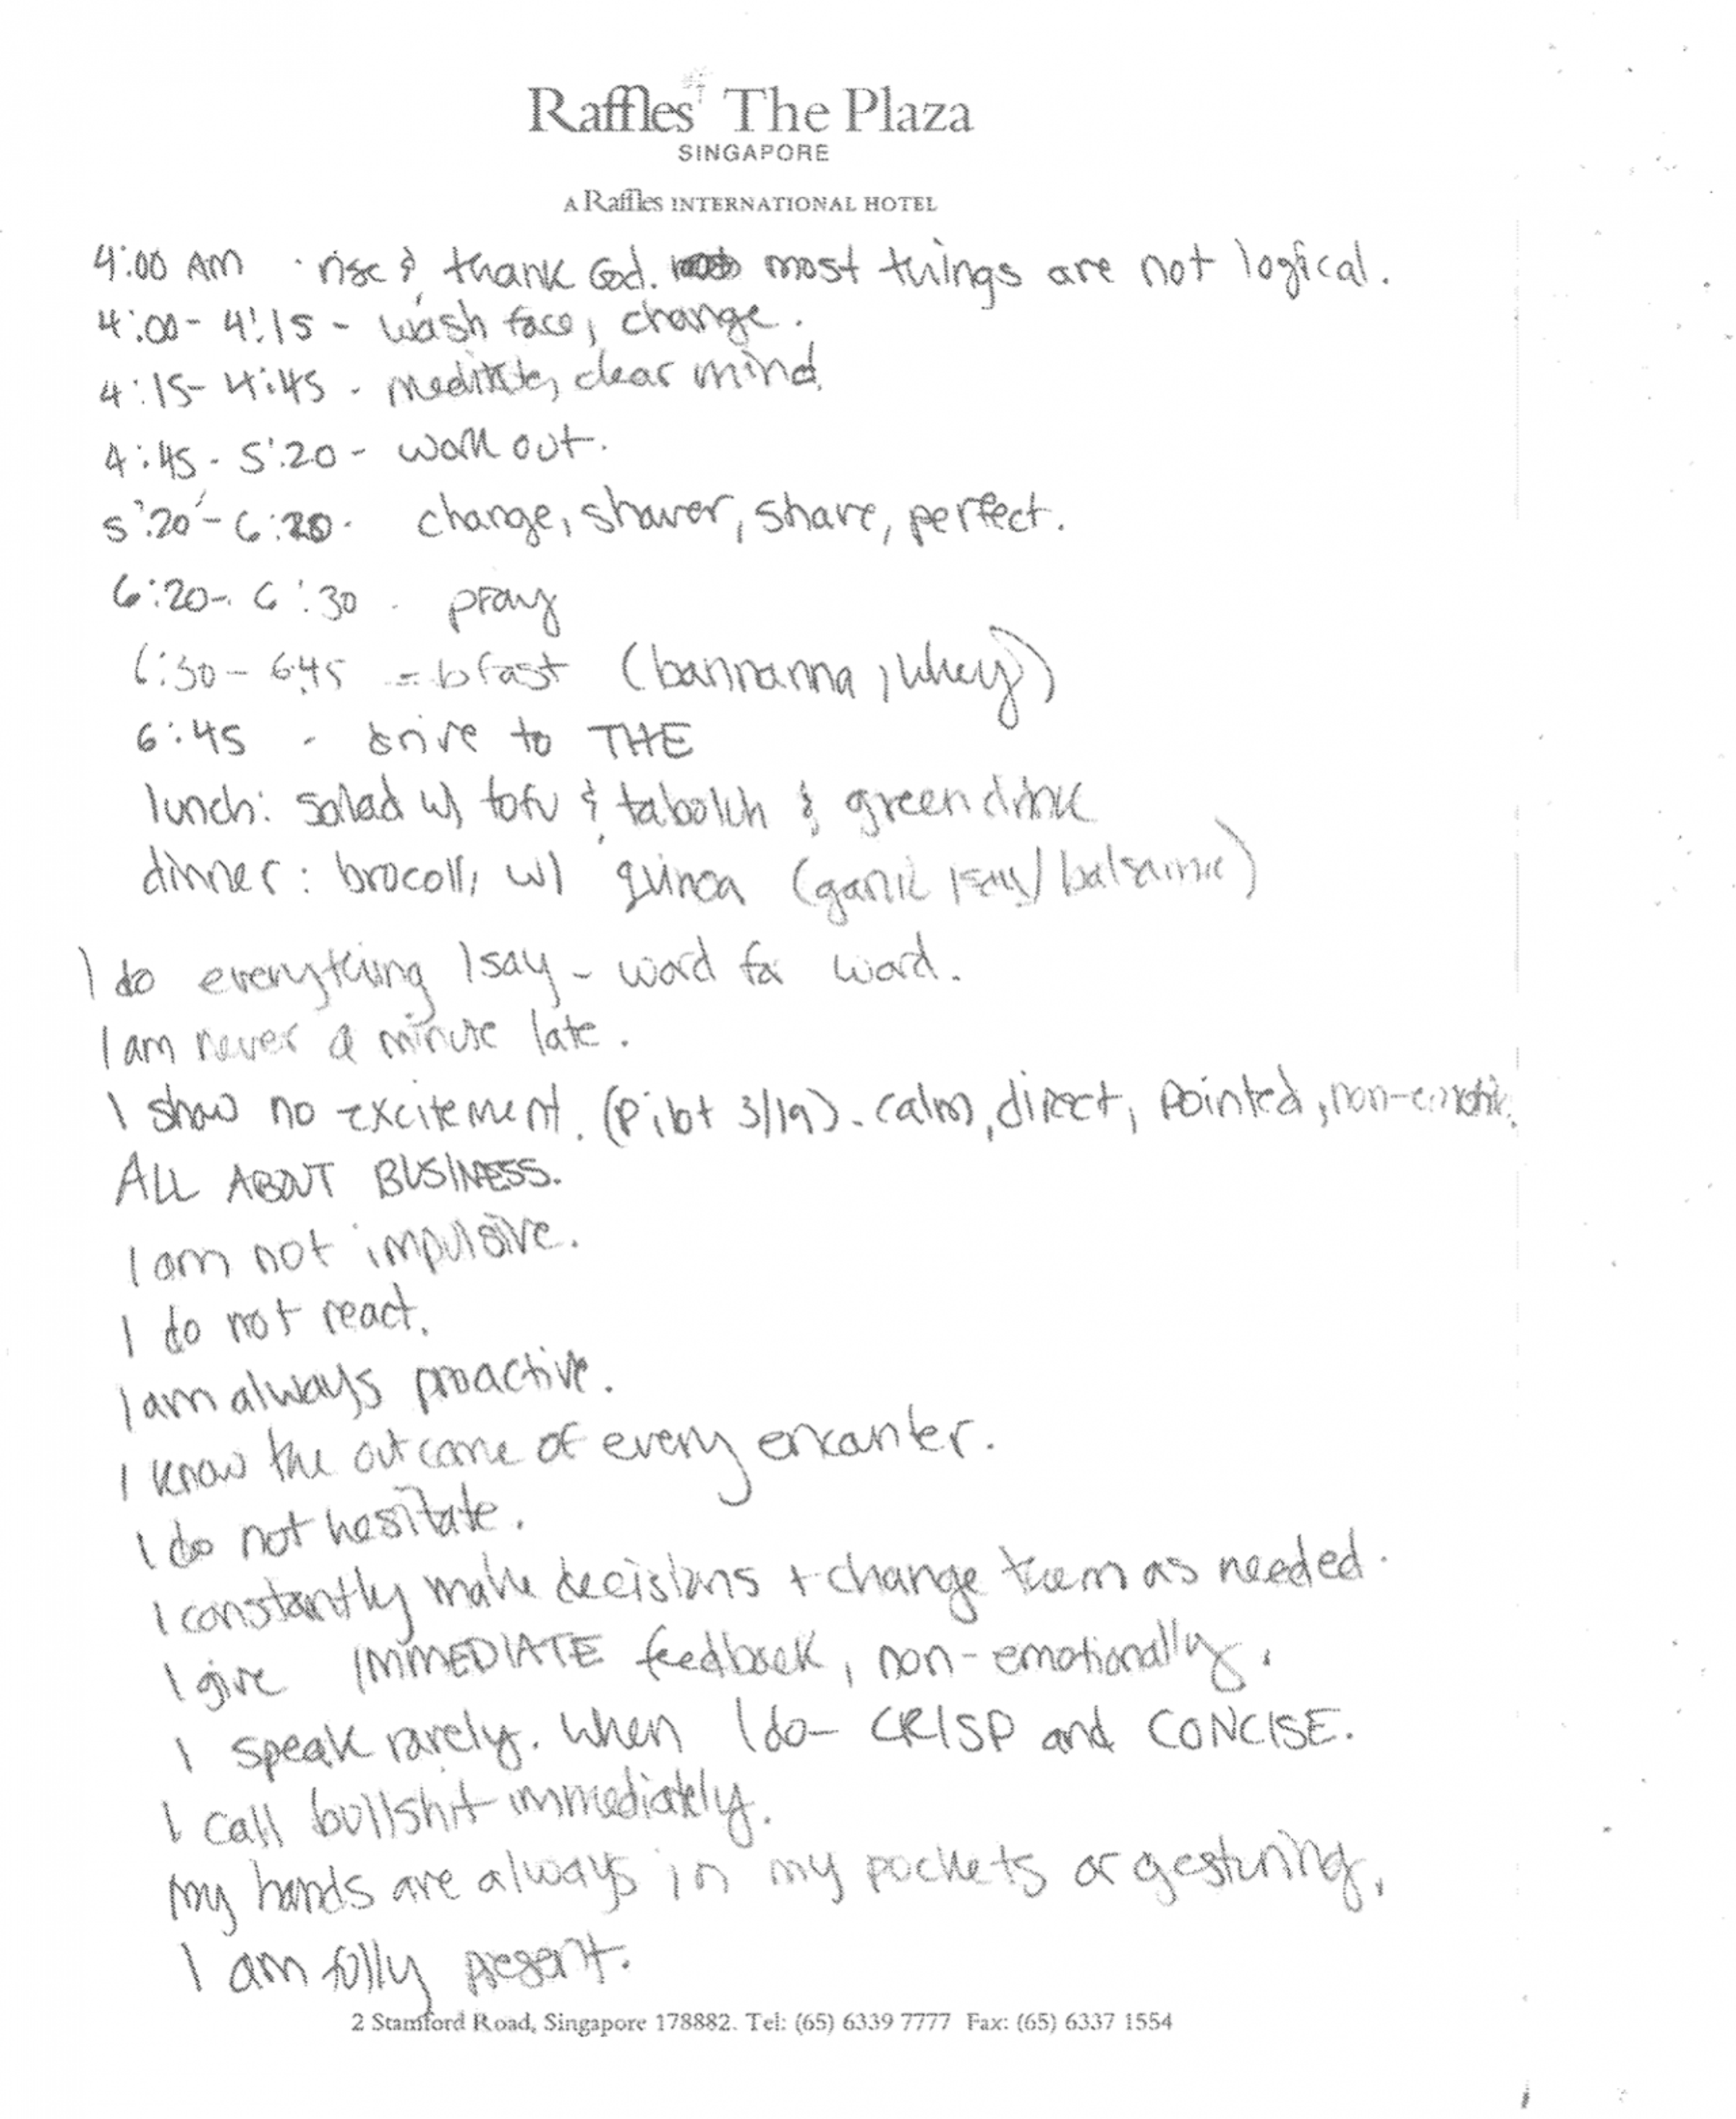 Raffles The Plaza
SINGAPORE
A Raffles INTERNATIONAL HOTEL
4:00 AM · rise & thank God. most things are not logical.
4:00 - 4:15 - wash face, change.
4:15 - 4:45 - meditate, clear mind.
4:45 - 5:20 - work out.
5:20 - 6:20 - change, shower, shave, perfect.
6:20 - 6:30 - pray
6:30 - 6:45 = bfast (bannanna, whey)
6:45 - drive to THE
lunch: salad w/ tofu & taboleh & green drink
dinner: brocolli w/ quinoa (garlic /balsamic)
I do everything I say - word for word.
I am never a minute late.
I show no excitement. (Pilot 3/19). calm, direct, pointed, non-emotio.
ALL ABOUT BUSINESS.
I am not impulsive.
I do not react.
I am always proactive.
I know the outcome of every encounter.
I do not hesitate.
I constantly make decisions + change them as needed.
I give IMMEDIATE feedback, non-emotionally.
I speak rarely. When I do - CRISP and CONCISE.
I call bullshit immediately.
My hands are always in my pockets or gesturing.
I am fully present.
2 Stamford Road, Singapore 178882. Tel: (65) 6339 7777 Fax: (65) 6337 1554